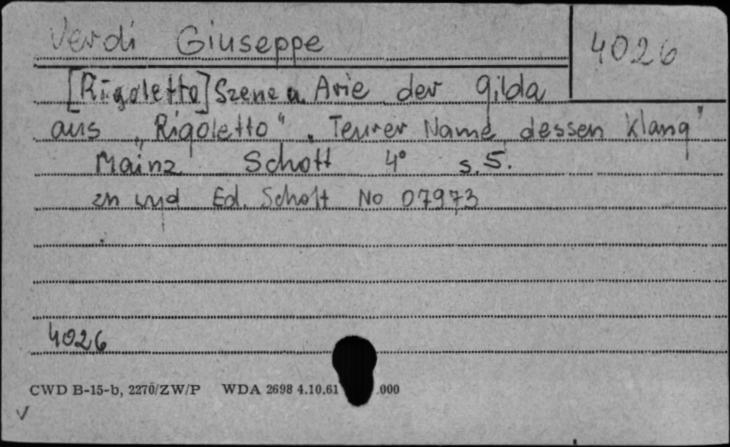 Verdi Giuseppe 4026
[Rigoletto] Szene u. Arie der Gilda
aus „Rigoletto“ „Teurer Name dessen Klang"
Mainz Schott 4° s. 5.
Ed. Schott No 07973
4026
CWD B-15-b, 2270/ZW/P WDA 2698 4.10.61 .000
v